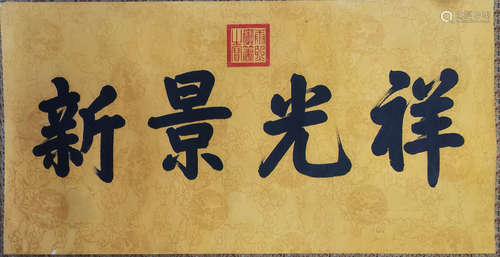 祥光景新